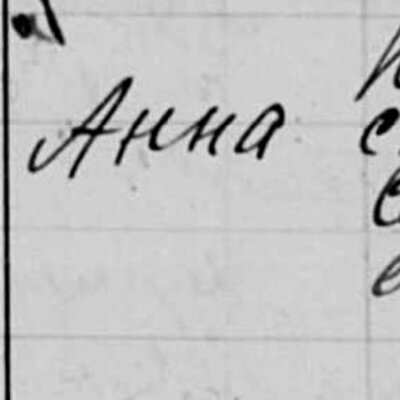 Анна